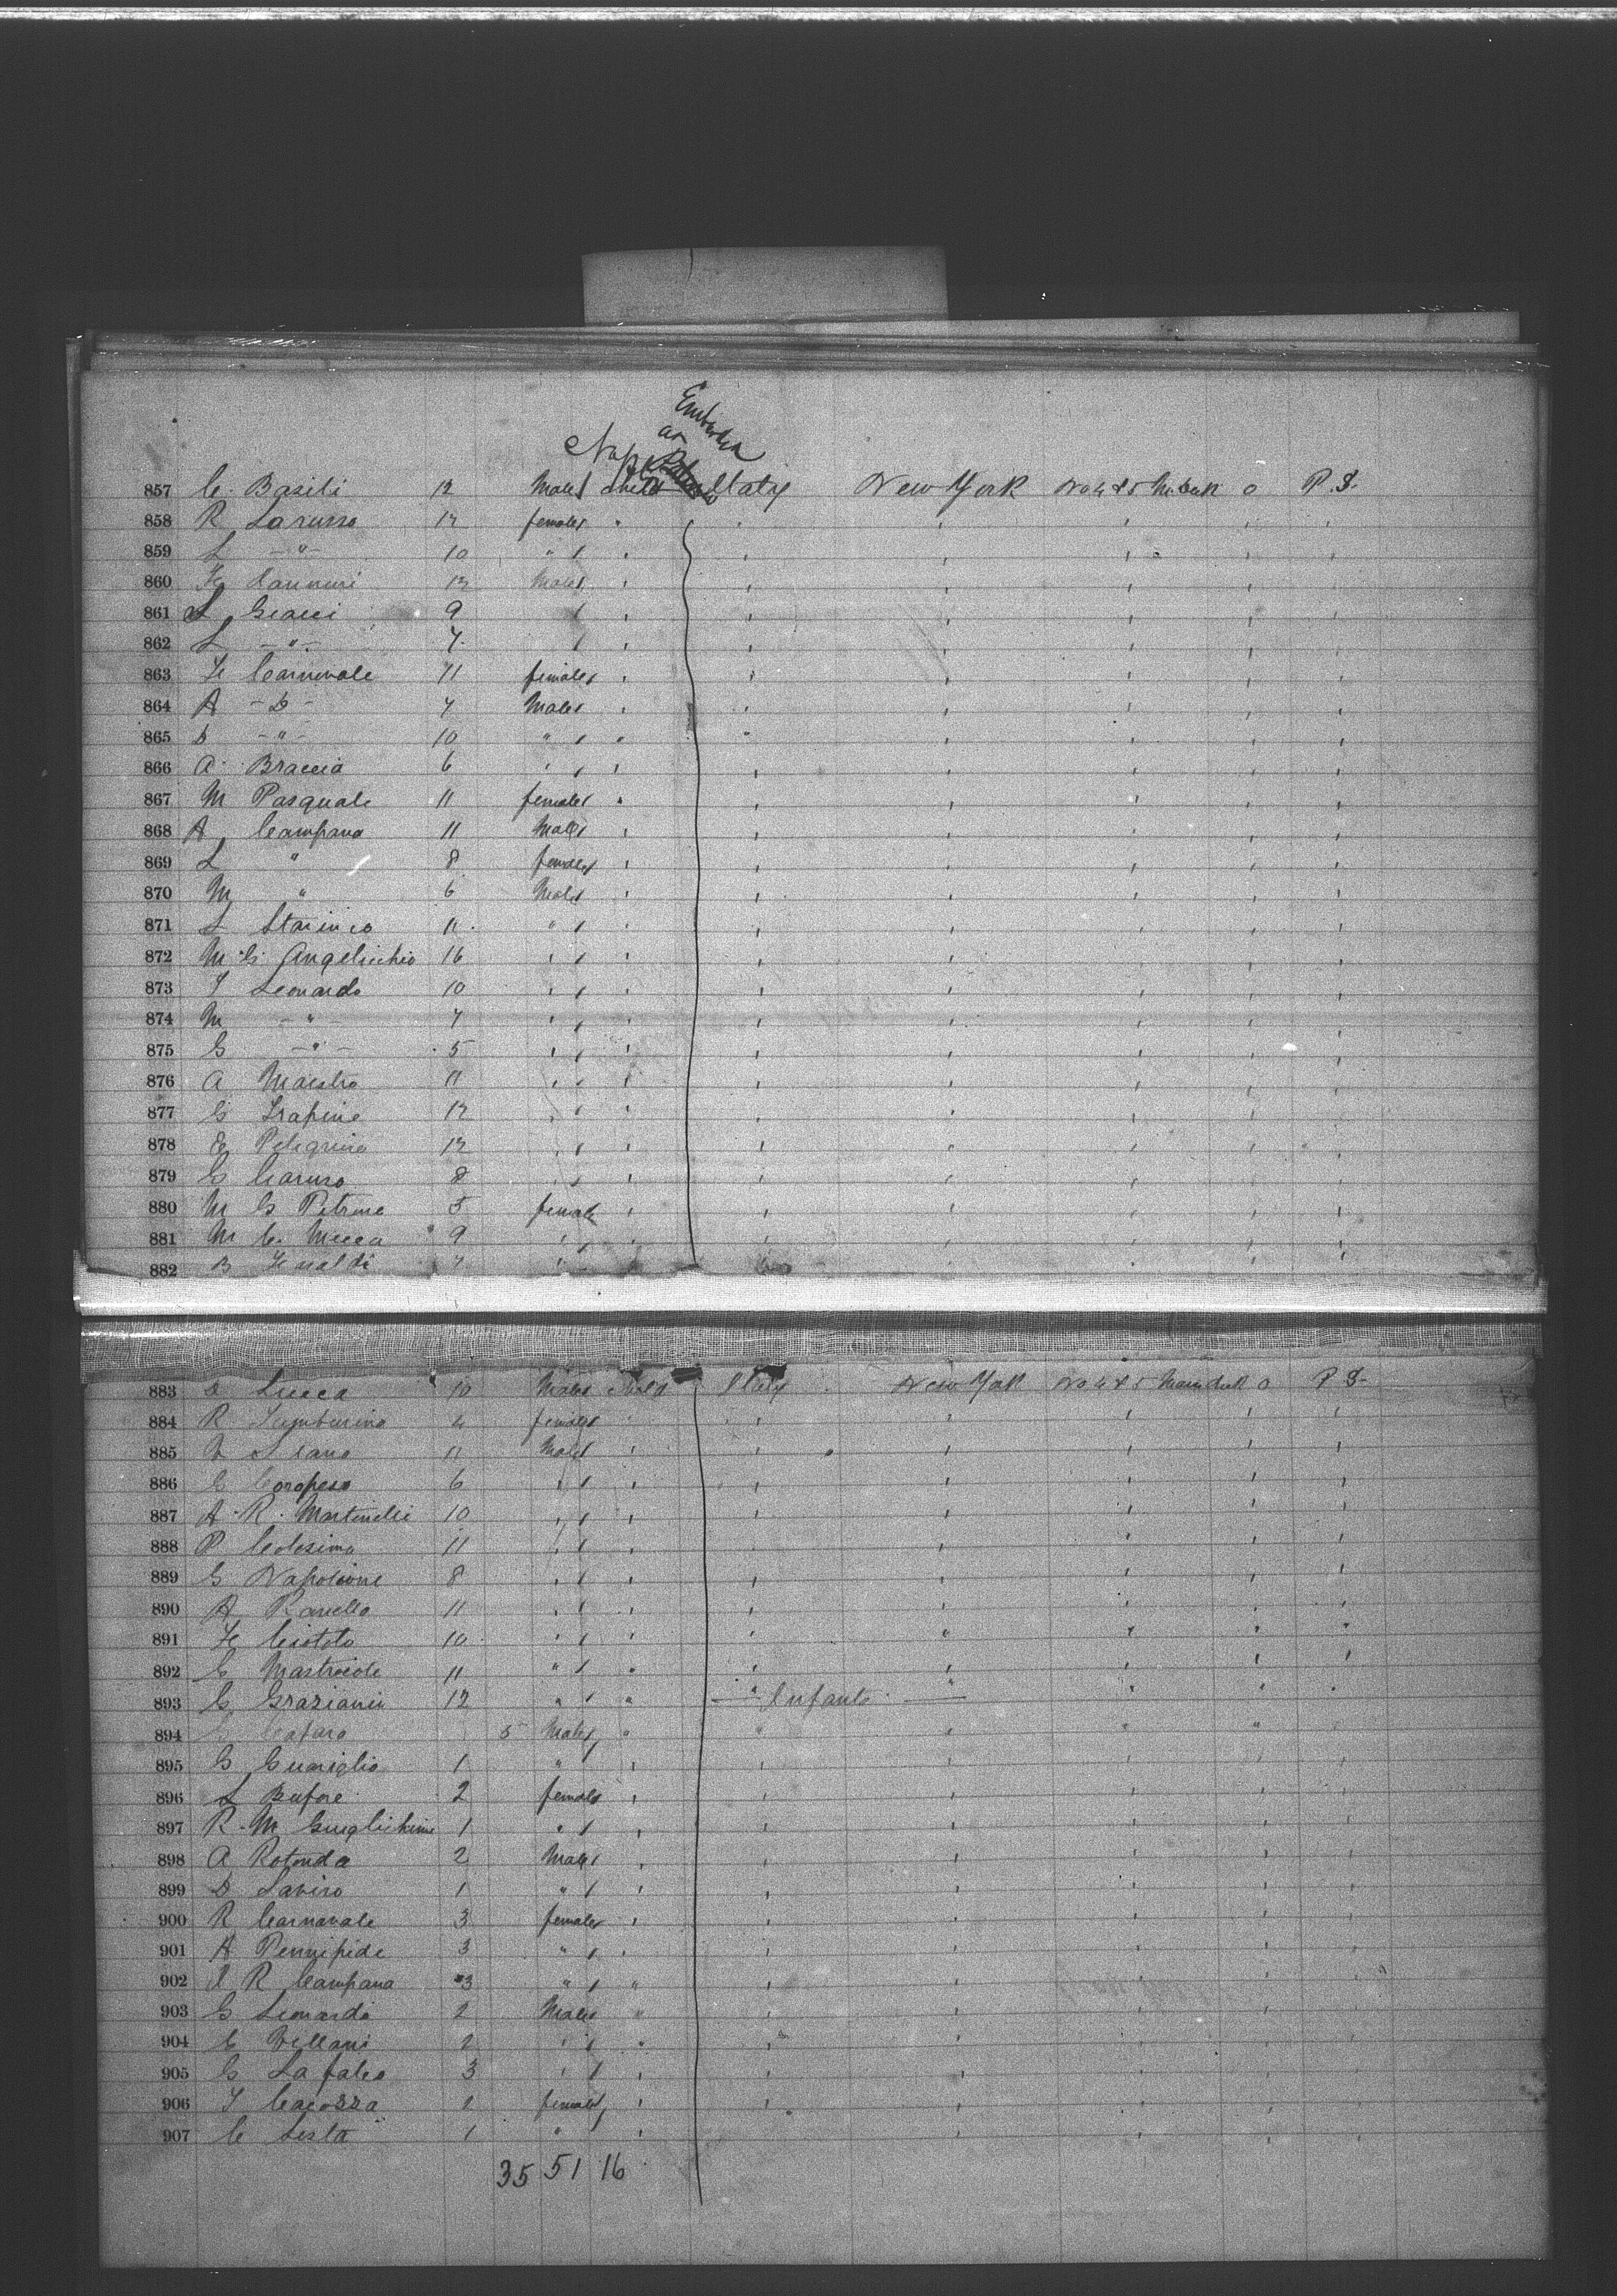 Embarked
at
857 C. Basili 12 Males child Italy New York No 4 & 5 o P. S.
858 R Larusso 12 females "
859 L - " - 10 " "
860 12 Males "
861 L Giacci 9
862 L - " - 7
863 F Carnevale 11 females
864 A - D - 7 Males
865 D - " - 10 " "
866 A. Braccia 6 " "
867 M Pasquale 11 females "
868 A Campana 11 Males
869 L " 8 females
870 M " 6 Males
871 L 11 " "
872 M. G. Angelicchio 16 " "
873 Leonardo 10 " "
874 M - " - 7 " "
875 G - " - 5 " "
876 A Maestro 11 " "
877 G 12 " "
878 E Peligrino 12 " "
879 G Caruso 8 " "
880 M G Petrone 5 female
881 M C. Mecca 9 " "
882 B 7 "
883 D Lucca 10 Males child Italy New York No 4 & 5 o P S.
884 R Tamburino females
885 11 Males
886 G Coropeso 6 " "
887 A. R. Martinelli 10 " "
888 P 11 " "
889 G Napolione 8 " "
890 A 11 " "
891 F Ciotola 10 " "
892 Mastroiole 11 " "
893 G Graziani 12 " " " - " Infants -
894 Cafaro 5 Males "
895 G Guariglio 1 " "
896 L Bufore 2 females
897 R. M 1 " "
898 A Rotonda 2 Males
899 D Laviso 1 " "
900 R Carnavale 3 females
901 A Pennipede 3 " "
902 R Campana 3 " " "
903 G Leonardo 2 Males "
904 Villani 2 " "
905 G La falco 3 " "
906 Cacozza 2 females
907 C Lista 1 "
35 51 16